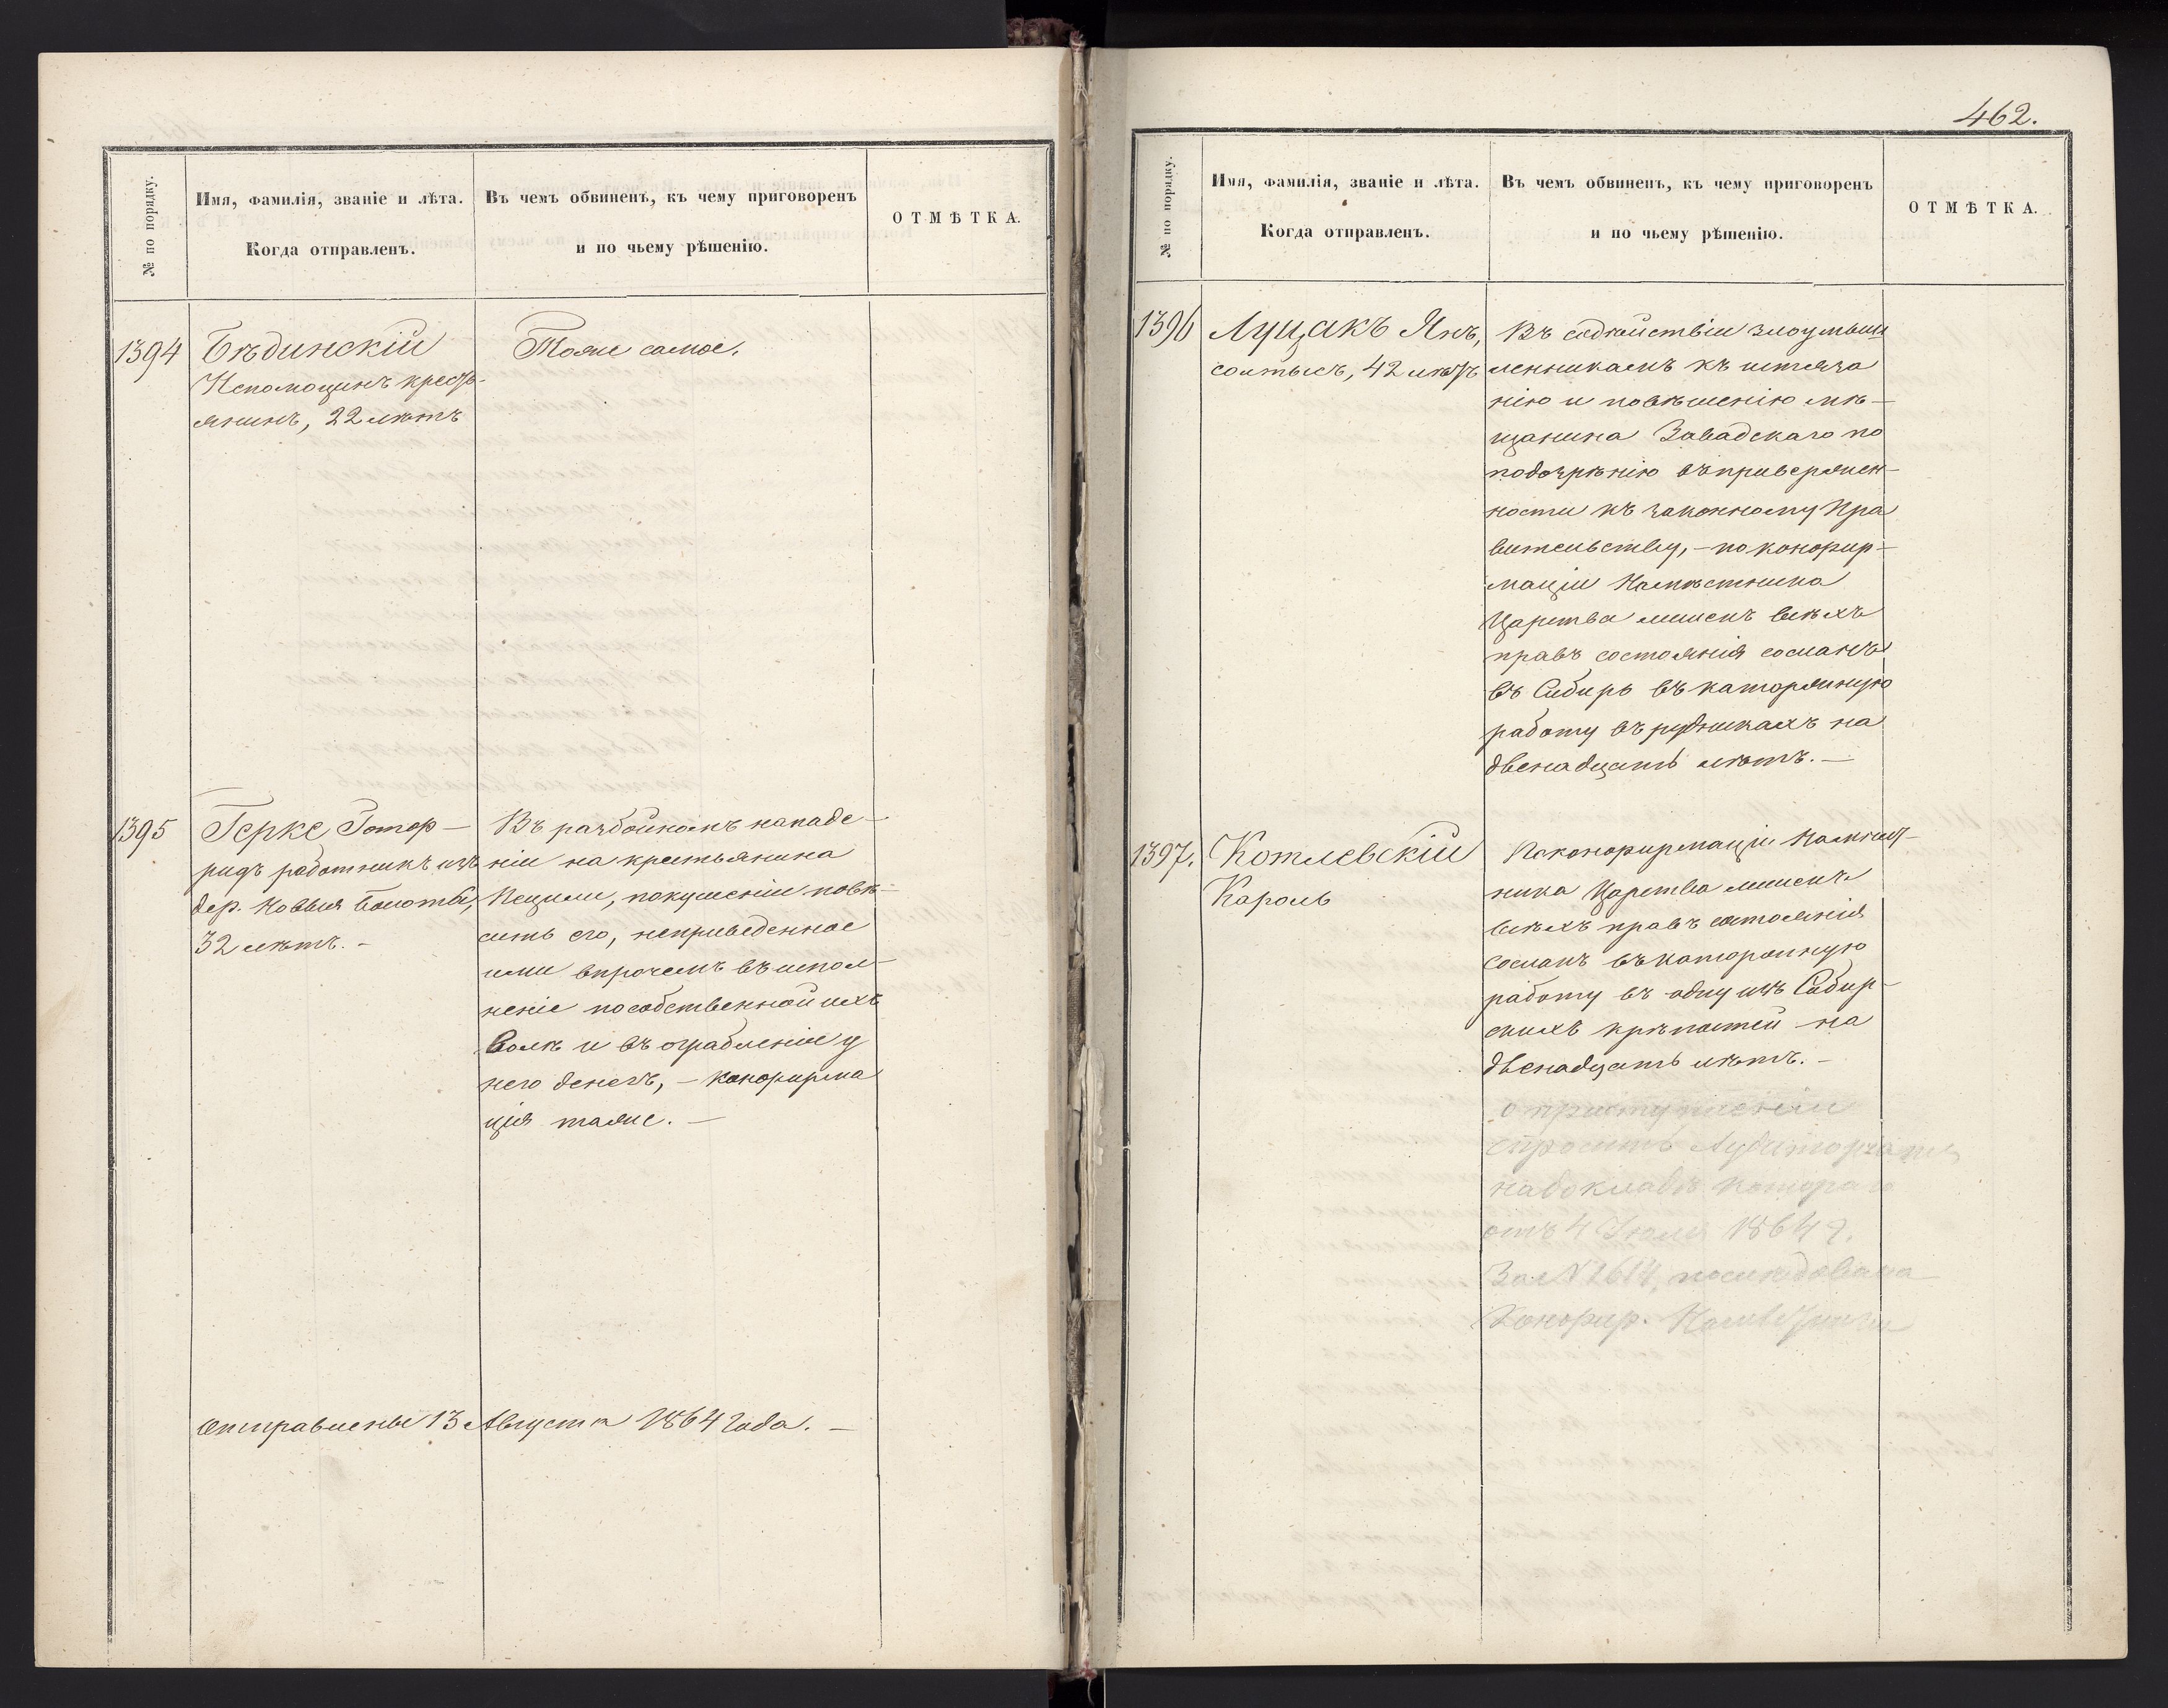 № по порядку.
Имя, фамилія, званіе и лѣта.
Когда отправленъ.
Въ чемъ обвиненъ, къ чему приговоренъ
и по чьему рѣшенію.
ОТМѢТКА.
1394
Бѣдинскій
Непомоцинъ кресть-
янинъ, 22 лѣтъ
Тоже самое.
1395
Герке Готф-
ридъ работникъ изъ
дер. Новыя Болоты,
32 лѣтъ. -
Въ разбойномъ нападе-
ніи на крестьянина
Пецили, покушеніи повѣ-
сить его, неприведенное
ими впрочемъ въ испол-
неніе по собственной ихъ
волѣ и въ ограбленіе у
него денегъ, - конфирма
ція таже. -
Отправлены 13 Августа 1864 года. -
462.
№ по порядку.
Имя, фамилія, званіе и лѣта.
Когда отправленъ.
Въ чемъ обвиненъ, къ чему приговоренъ
и по чьему рѣшенію.
ОТМѢТКА.
1396
Луцакъ Янъ,
солтысъ, 42 лѣтъ
Въ содѣйствіи злоумыш
ленникамъ къ истяза
нію и повѣшенію мѣ-
щанина Завадскаго по
подозрѣнію въ привержен-
ности къ законному Пра
вительству, - по конфир-
маціи Намѣстника
Царства лишенъ всѣхъ
правъ состоянія сосланъ
въ Сибирь въ каторжную
работу въ рудникахъ на
двенадцать лѣтъ. -
1397.
Котлевскій
Кароль
По конфирмаціи Намѣст-
ника Царства лишенъ
всѣхъ правъ состоянія
сосланъ въ каторжную
работу въ одну изъ Сибир-
скихъ крѣпостей на
двенадцать лѣтъ. -
о преступленіи
спросить
на докладѣ котораго
отъ 4 1864 г.
За № 1614, последовала
Конфир. Намѣстника